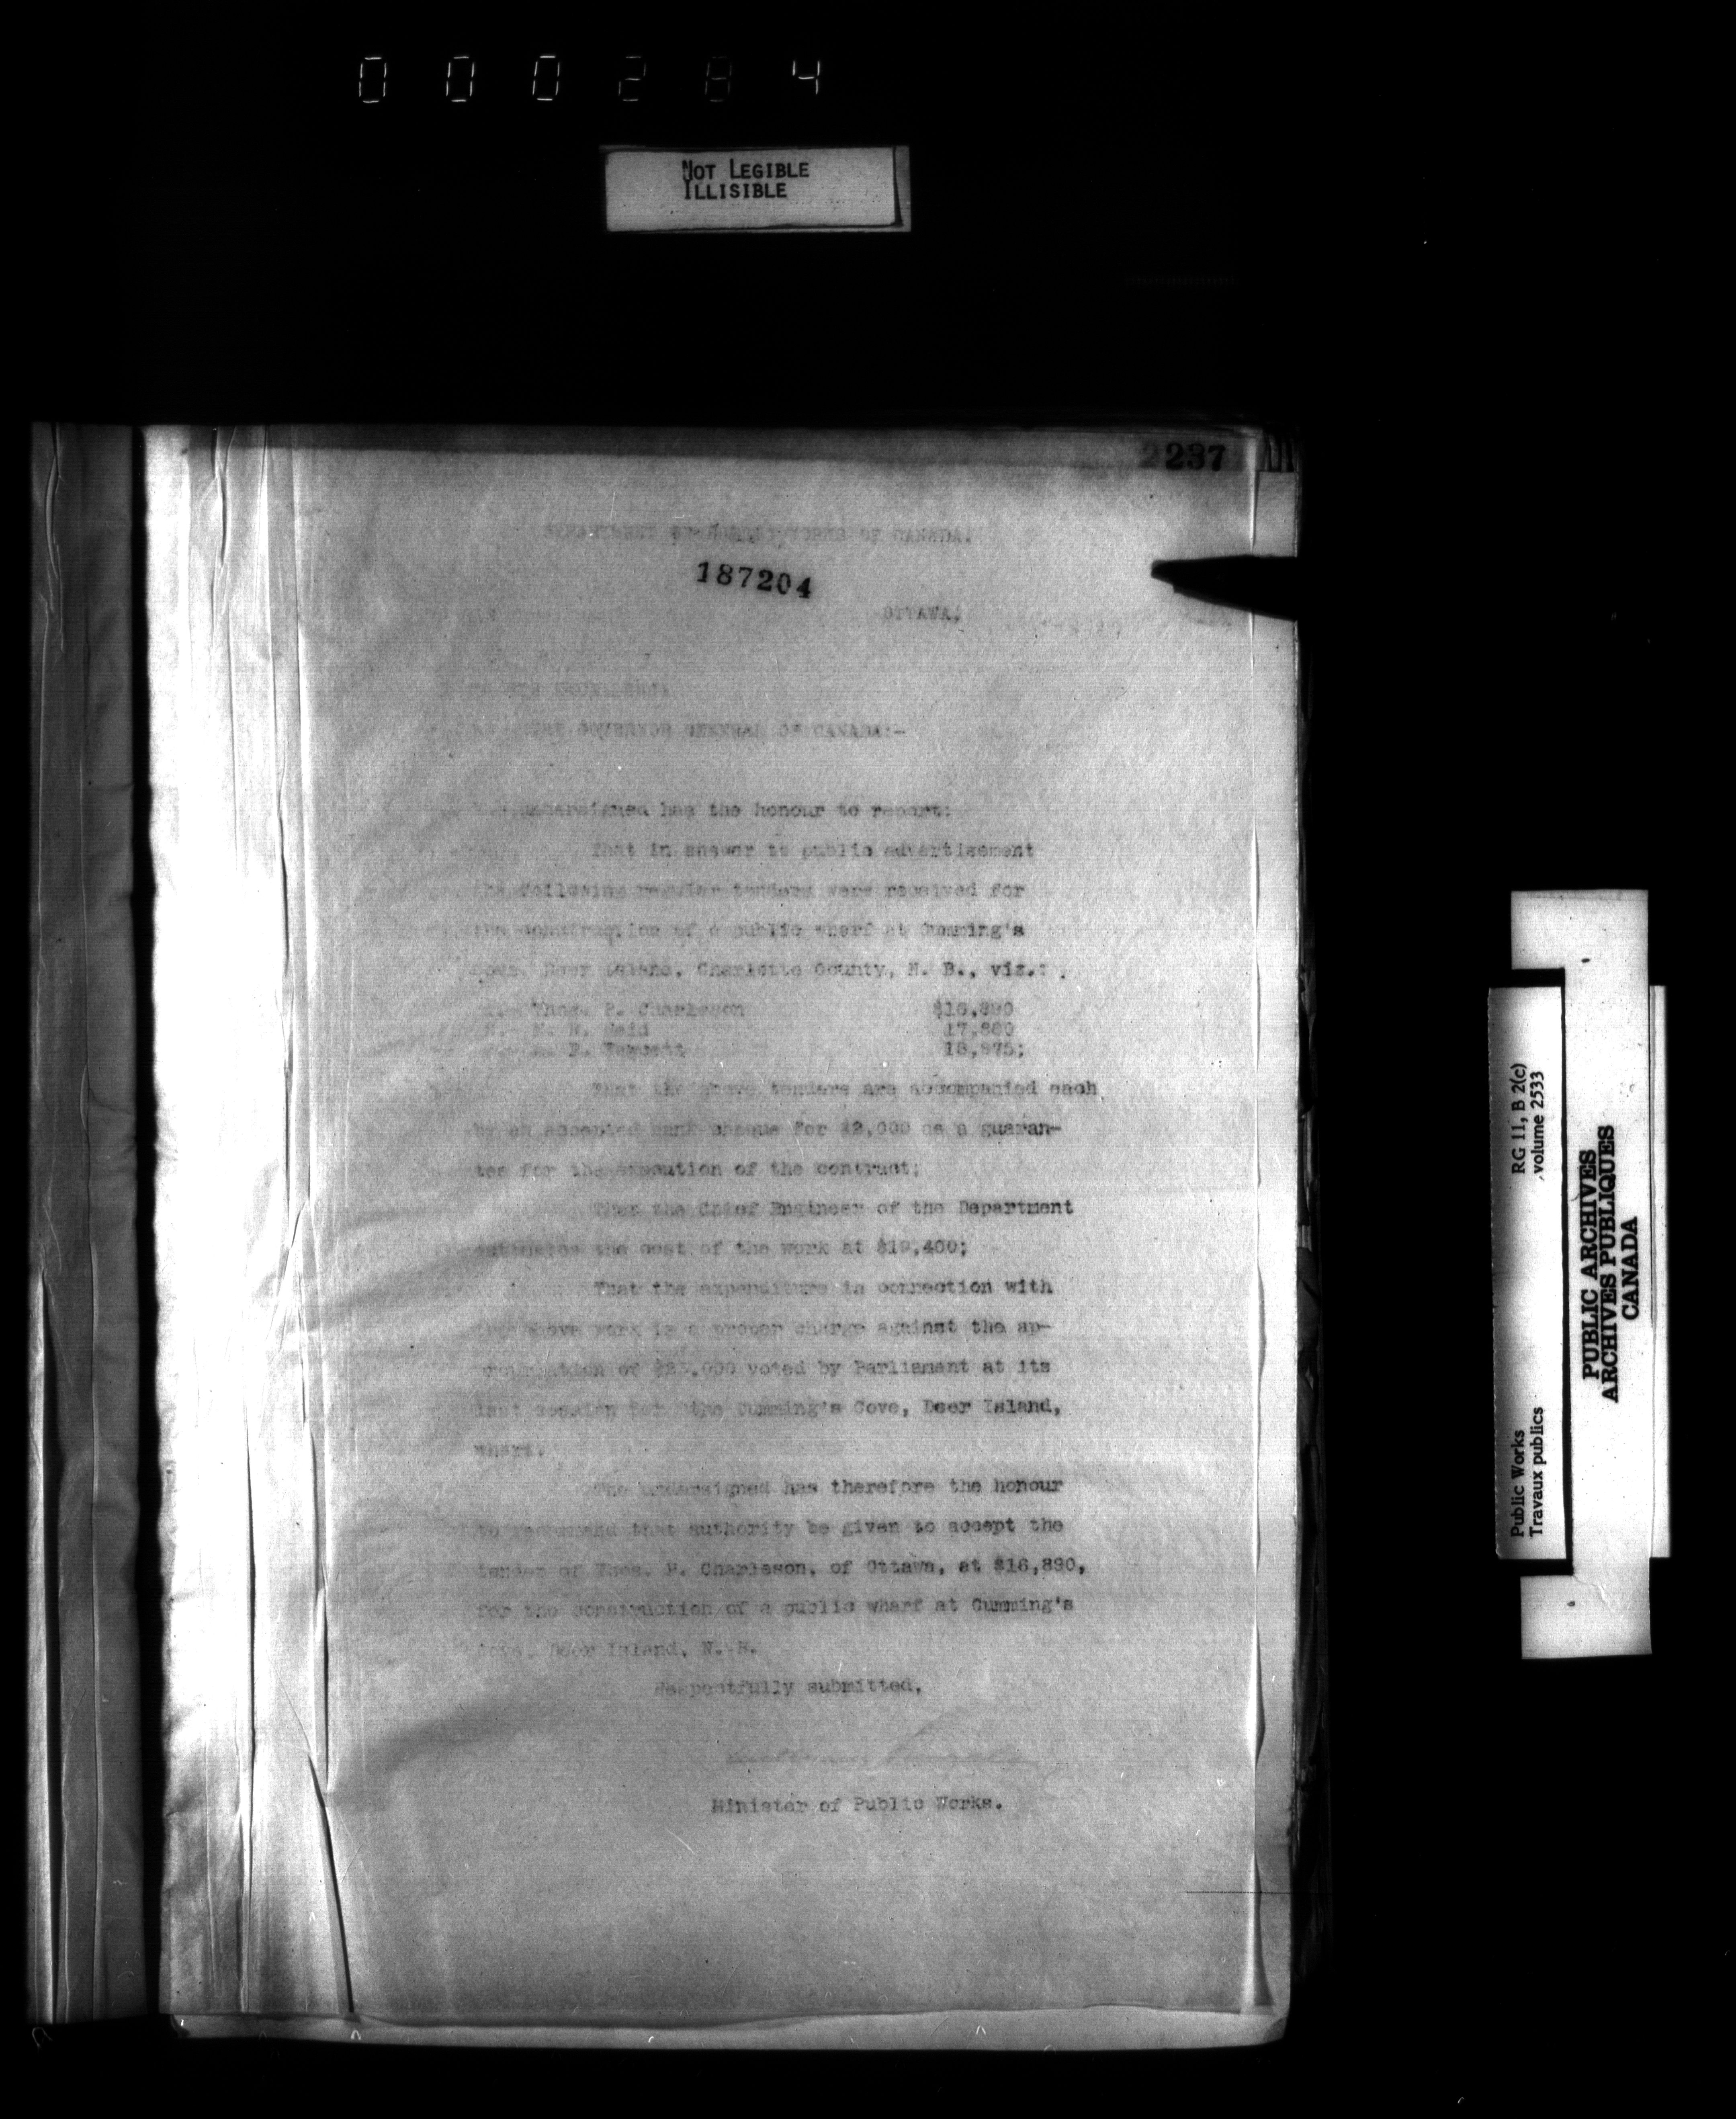 000284
NOT LEGIBLE
ILLISIBLE
2237
DEPARTMENT OF PUBLIC WORKS OF CANADA.
187204
OTTAWA,
TO HIS EXCELLENCY
THE GOVERNOR GENERAL OF CANADA:-
undersigned has the honour to report:
That in answer to public advertisement
the following regular tenders were received for
the construction of a public wharf at Cumming's
Cove, Deer Island, Charlotte County, N. B., viz.:
Thos. P. Charleson $16,890
Reid
18,975;
That the above tenders are accompanied each
by an accepted bank cheque for $2,000 as a guaran-
tee for the execution of the contract;
That the Chief Engineer of the Department
estimates the cost of the work at $19,400;
That the expenditure in connection with
the above work is a proper charge against the ap-
propriation of voted by Parliament at its
last session for the Cumming's Cove, Deer Island,
wharf.
The undersigned has therefore the honour
to recommend that authority be given to accept the
tender of Thos. P. Charleson, of Ottawa, at $16,890,
for the construction of a public wharf at Cumming's
Cove, Deer Island, N. B.
Respectfully submitted,
Minister of Public Works.
Public Works RG 11, B 2(c)
Travaux publics volume 2533
PUBLIC ARCHIVES
ARCHIVES PUBLIQUES
CANADA